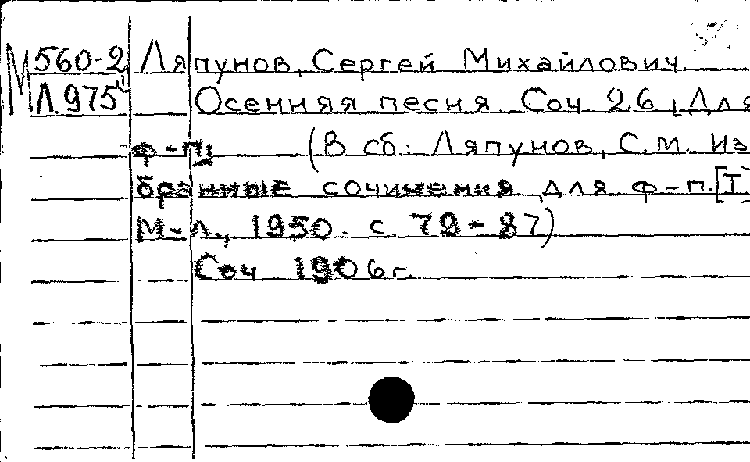 М 560-2 Ляпунов, Сергей Михайлович.
Л 975 Осенняя песня. Соч 26, Для
ф-п. (В сб.: Ляпунов, С.М. Из
бранные сочинения для ф-п. [I]
М-Л., 1950. с. 79-87)
Соч 1906 г.